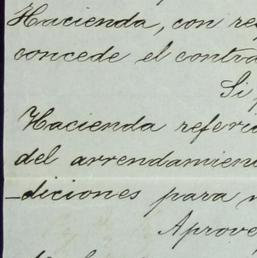 Hacienda, con re
concede el contra
Si
Hacienda referi
del arrendamien
-diciones para
Aprove